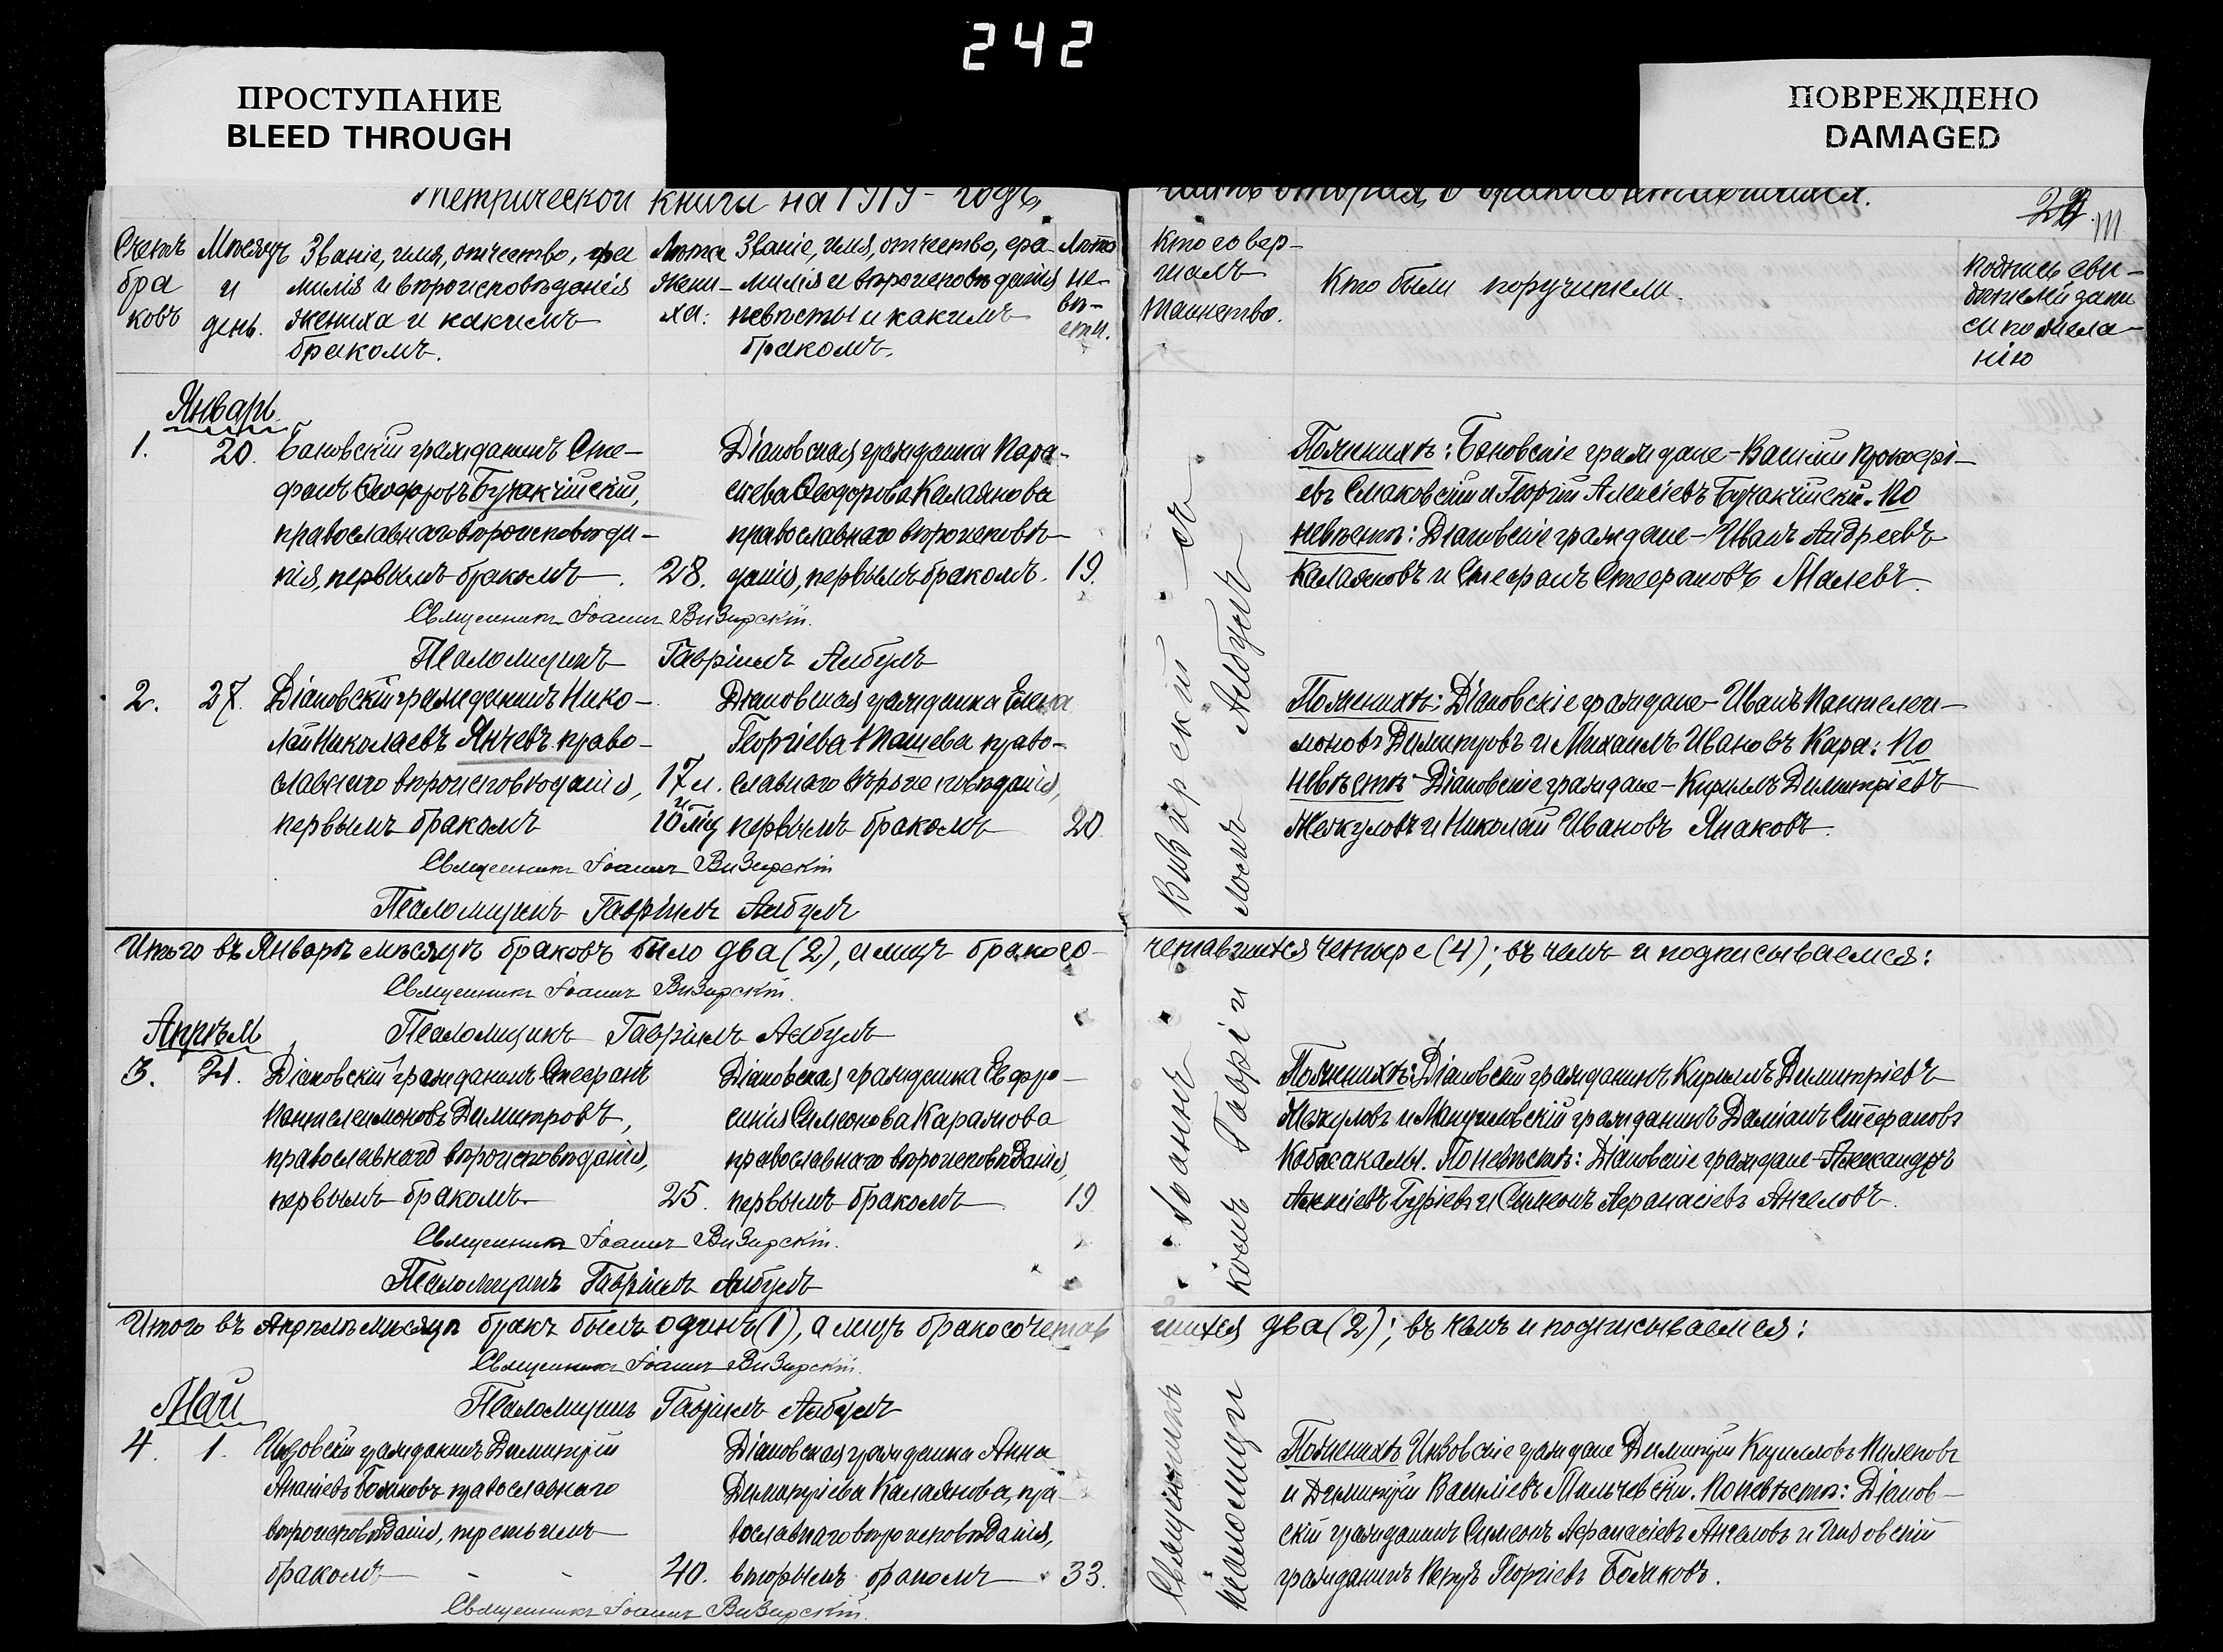 242
ПРОСТУПАНИЕ
BLEED THROUGH
ПОВРЕЖДЕНО
DAMAGED
Метрической книги на 1919 годъ,
часть вторая, о бракосочетавшихся.
Счетъ браковъ
Мѣсяцъ и день.
Званіе, имя, отчество, фамилія и вѣроисповѣданія жениха и какимъ бракомъ.
Лѣта жениха.
Званіе, имя, отчество, фамилія и вѣроисповѣданія невѣсты и какимъ бракомъ.
Лѣта невѣсты.
Кто совершалъ таинство.
Кто были поручители.
Подпись свидѣтелей записи по желанію
Январь
1. 20. Бановскій гражданинъ Сте-
фанъ Ѳеодоровъ Бучакчійскій,
православнаго вѣроисповѣда-
нія, первымъ бракомъ. 28.
Діановская гражданка Пара-
скева Ѳеодорова Калаянова
православнаго вѣроисповѣ-
данія, первымъ бракомъ. 19.
По женихѣ: Бановскіе граждане - Василій Прокофі-
евъ Смаковскій и Георгій Алексіевъ Бучакчійскій. По
невѣстѣ: Діановскіе граждане - Иванъ Андреевъ
Калаяновъ и Стефанъ Стефановъ Малевъ.
Священникъ Іоаннъ Визирскій.
Псаломщикъ Гавріилъ Албулъ
2. 27. Діановскій гражданинъ Нико-
лай Николаевъ Янчевъ право-
славнаго вѣроисповѣданія, 17 л.
первымъ бракомъ и 10 мѣц
Діановская гражданка Елена
Георгіева Ипашева право-
славнаго вѣроисповѣданія,
первымъ бракомъ 20
По женихѣ: Діановскіе граждане - Иванъ Пантелеи-
моновъ Димитровъ и Михаилъ Ивановъ Кара; По
невѣстѣ - Діановскіе граждане - Кириллъ Димитріевъ
Жекуловъ и Николай Ивановъ Янаковъ.
Священникъ Іоаннъ Визирскій
Псаломщикъ Гавріилъ Албулъ
Итого въ Январѣ мѣсяцѣ браковъ было два (2), а лицъ бракосо-
четавшихся четыре (4); въ чемъ и подписываемся:
Священникъ Іоаннъ Визирскій.
Псаломщикъ Гавріилъ Албулъ
Апрѣль
3. 21. Діановскій гражданинъ Стефанъ
Пантелеимоновъ Димитровъ,
православнаго вѣроисповѣданія,
первымъ бракомъ. 25.
Діановская гражданка Евфро-
синія Симеонова Караянова
православнаго вѣроисповѣданія,
первымъ бракомъ 19
По женихѣ: Діановскій гражданинъ Кириллъ Димитріевъ
Жекуловъ и Мануиловскій гражданинъ Даміанъ Стефановъ
Кобжакалы. По невѣстѣ: Діановскіе граждане - Александръ
Алексіевъ Буріевъ и Симеонъ Афанасіевъ Ангеловъ.
Священникъ Іоаннъ Визирскій.
Псаломщикъ Гавріилъ Албулъ
Итого въ Апрѣлѣ мѣсяцѣ бракъ былъ одинъ (1), а лицъ бракосочетав
шихся два (2); въ чемъ и подписываемся:
Священникъ Іоаннъ Визирскій.
Псаломщикъ Гавріилъ Албулъ
Май
4. 1. Инзовскій гражданинъ Димитрій
Ананіевъ Божковъ православнаго
вѣроисповѣданія, третьимъ
бракомъ - - 40.
Діановская гражданка Анна
Димитріева Калаянова, пра-
вославнаго вѣроисповѣданія,
вторымъ бракомъ 33.
По женихѣ Инзовскіе граждане Димитрій Кирилловъ Пиленовъ
и Димитрій Василіевъ Мильчевскій. По невѣстѣ: Діанов-
скій гражданинъ Симеонъ Афанасіевъ Ангеловъ и Инзовскій
гражданинъ Петръ Георгіевъ Божковъ.
Священникъ Іоаннъ Визирскій.
Священникъ Іоаннъ Визирскій съ
псаломщикомъ Гавріиломъ Албулъ